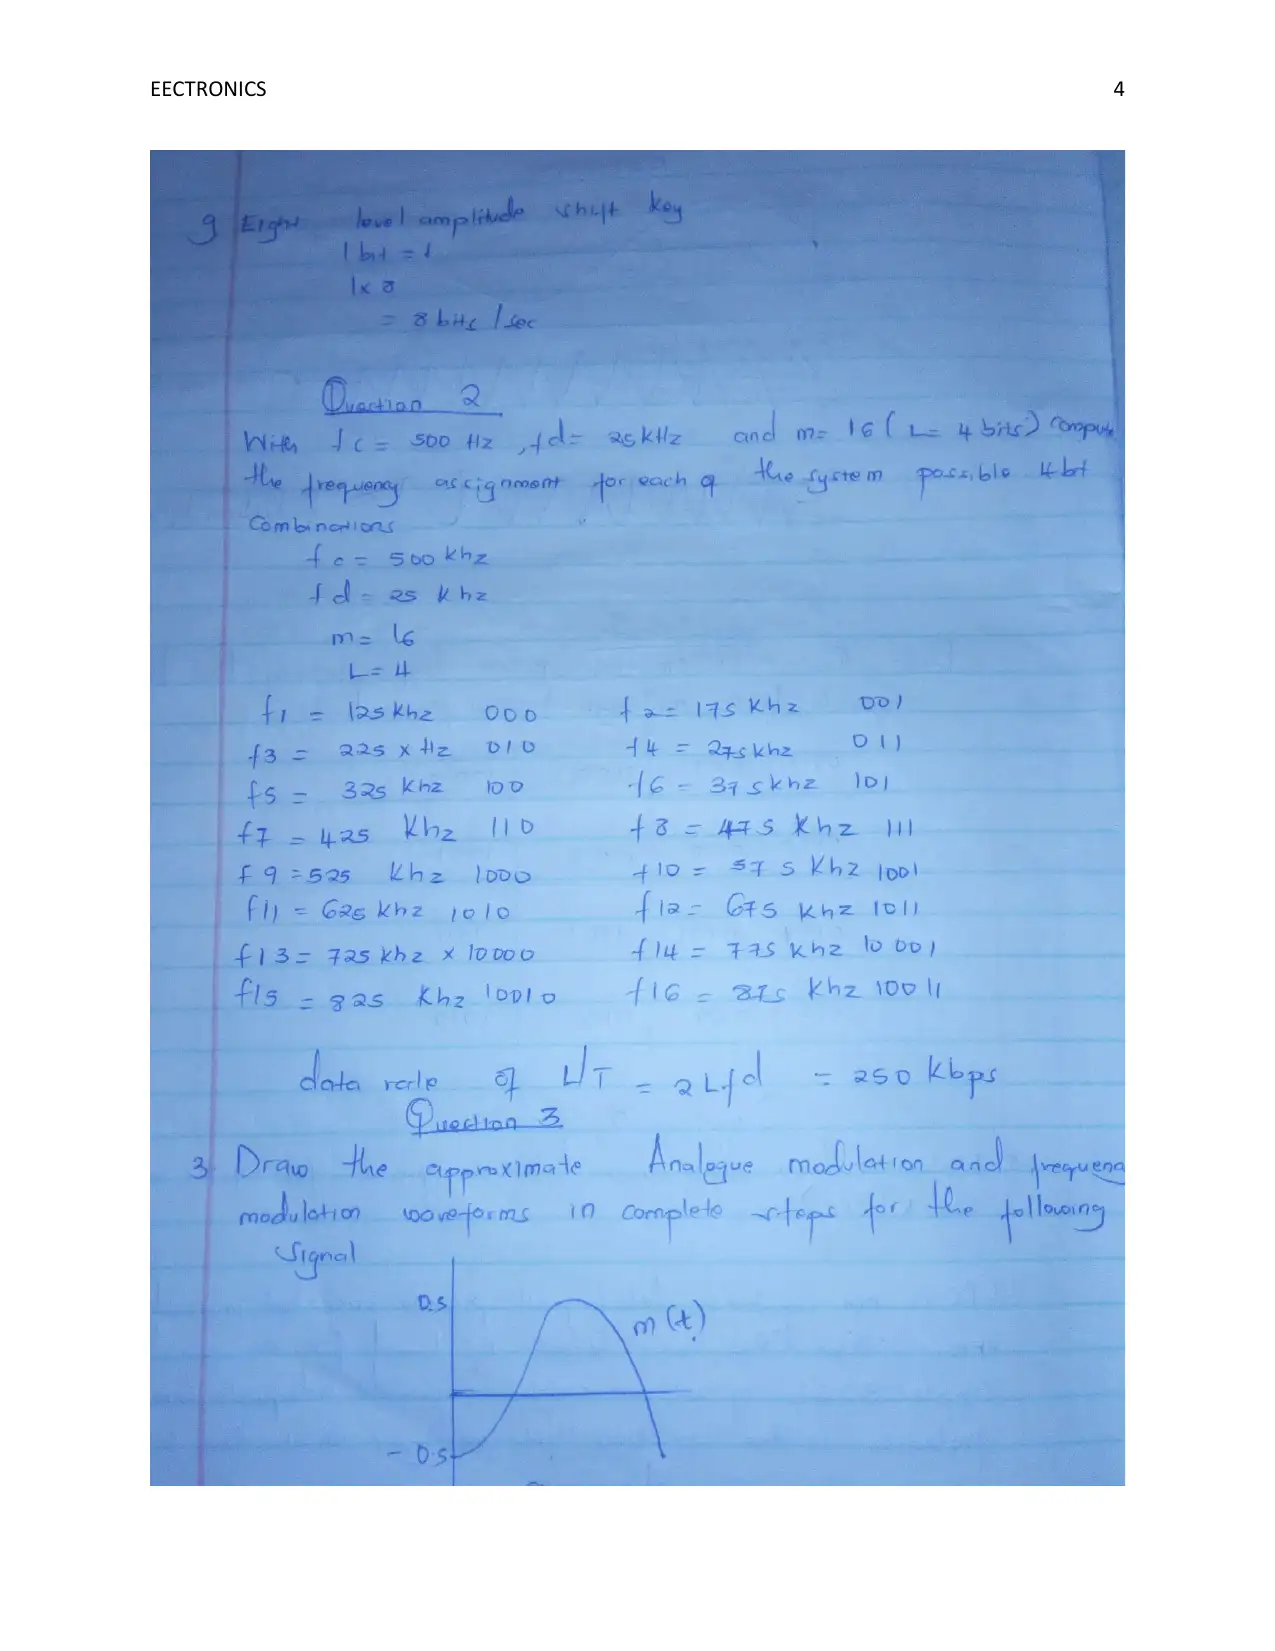 EECTRONICS 4
g Eight level amplitude shift key
1 bit = 1
1x 8
= 8 bits / sec
Question 2
With fc = 500 Hz , fd = 25 kHz and m= 16 ( L= 4 bits) compute
the frequency assignment for each of the system possible 4 bit
Combinations
fc = 500 khz
fd = 25 khz
m= 16
L= 4
f1 = 125 khz 000 f2 = 175 khz 001
f3 = 225 x Hz 010 f4 = 275 khz 011
f5 = 325 khz 100 f6 = 375 khz 101
f7 = 425 khz 110 f8 = 475 khz 111
f9 = 525 khz 1000 f10 = 575 khz 1001
f11 = 625 khz 1010 f12 = 675 khz 1011
f13 = 725 khz x 10000 f14 = 775 khz 10001
f15 = 825 khz 10010 f16 = 875 khz 10011
data rate of L/T = 2Lfd = 250 kbps
Question 3
3 Draw the approximate Analogue modulation and frequenc
modulation waveforms in complete steps for the following
Signal
0.5
m(t)
- 0.5